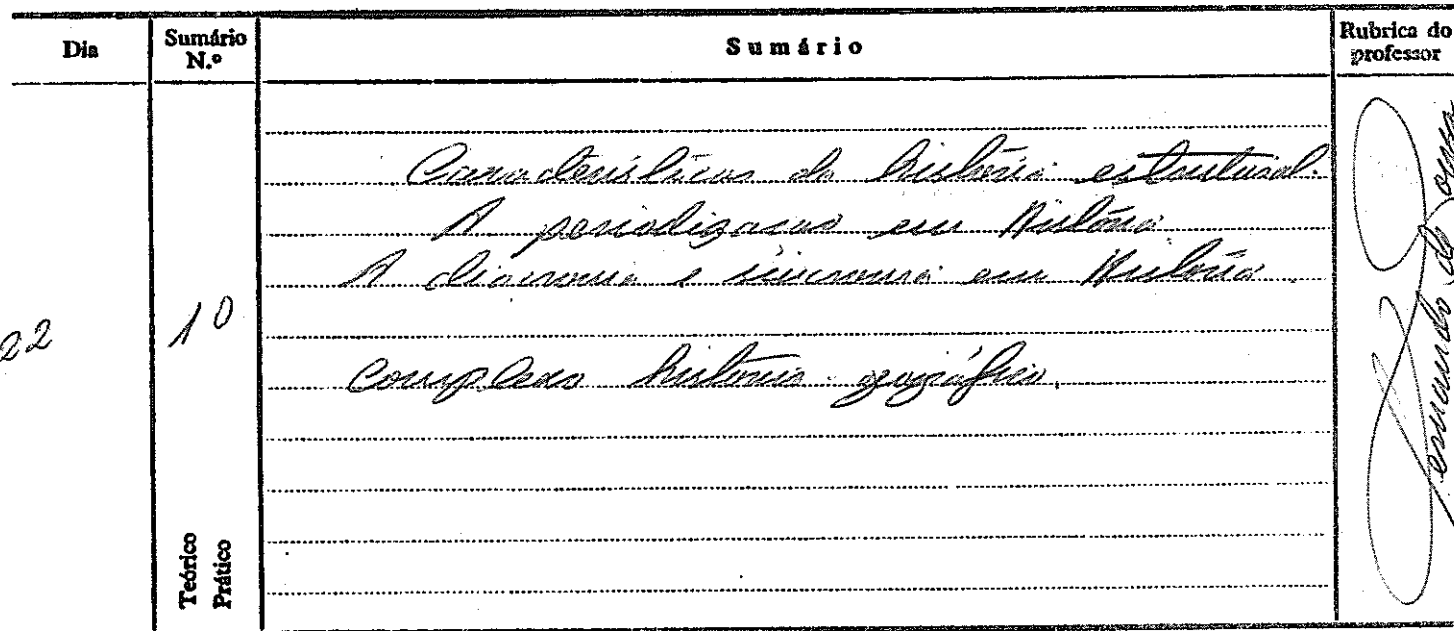 Dia
Sumário N.º
Sumário
Rubrica do professor
Características da história estrutural.
A periodização em História
A diacronia e sincronia em História
22
10
Complexo histórico-geográfico.
Teórico
Prático
Fernando de Sousa